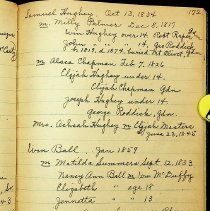 172
Samuel Hughey Oct 13, 1834
m. Milly Palmer Dec 8, 1817
Wm Hughey over 14. Bert Rapp
John " 14. Geo Roddick
b. 1803. d 1874. Gdn
m Absea Chapman Feb 7, 1826
Elijah Hughey under 14.
Elijah Chapman Gdn
Joseph Hughey under 14
George Roddick, Gdn.
Mrs. Achsah Hughey m Elijah Masters
June 23, 1845
Wm Ball Jan 1859
m Matilda Summers Sept. 12, 1833
Nancy Ann Ball m Wm McDuffy
Elizabeth " age 18
Jennetta " " 13